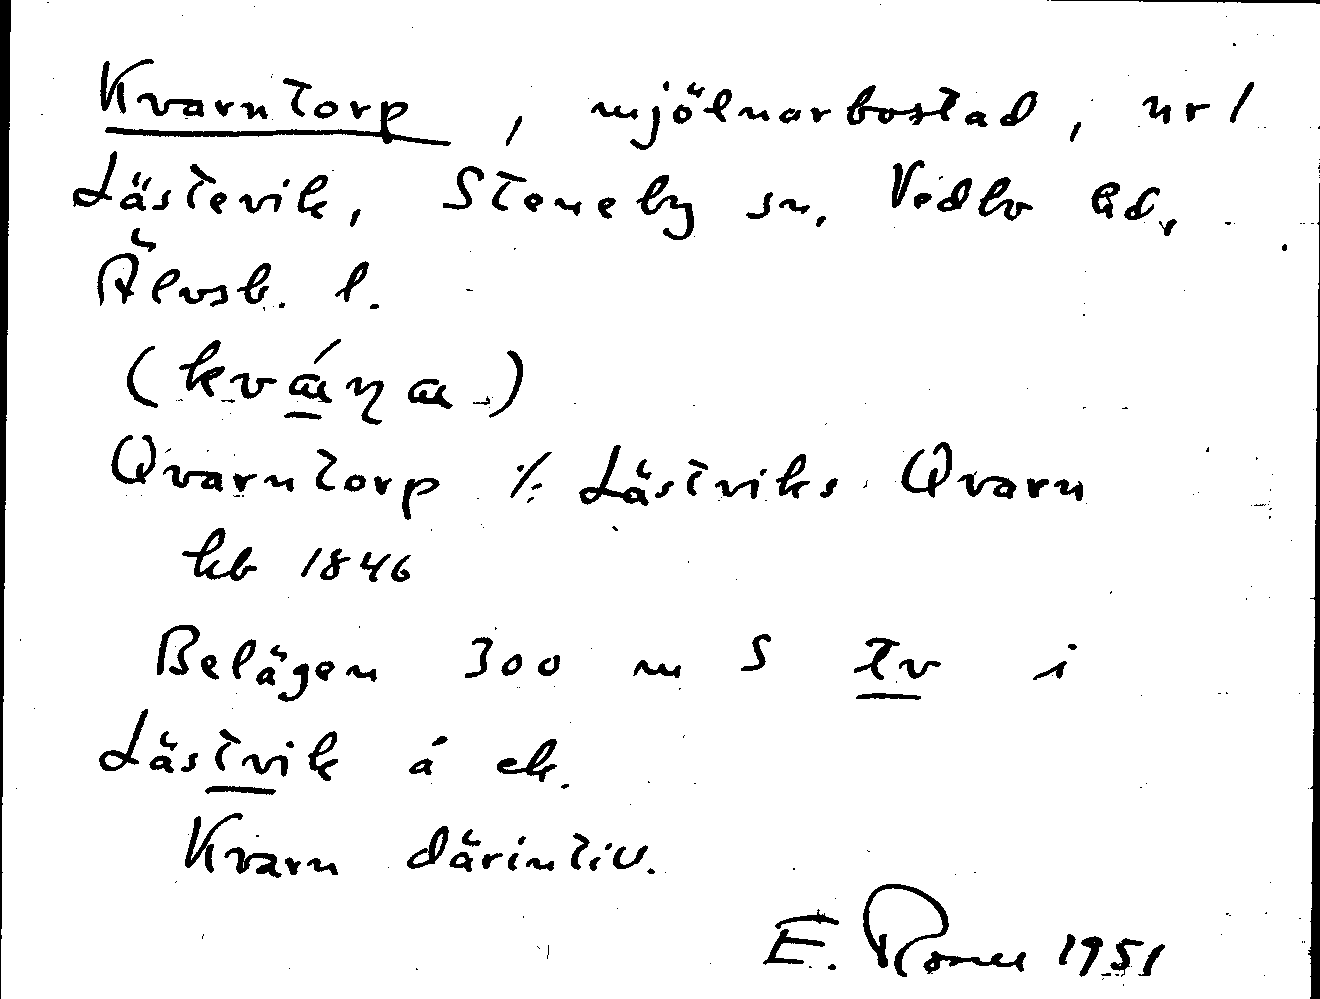 Kvarntorp, mjölnarbostad, nr 1
Lästevik, Steneby sn, Vedbo hd,
Älvsb. l.
(kvá̱ɳa)
Qvarntorp %: Lästviks Qvarn
hb 1846
Belägen 300 m S tv i
Lästvik å ek.
Kvarn därintill.
E. 1951